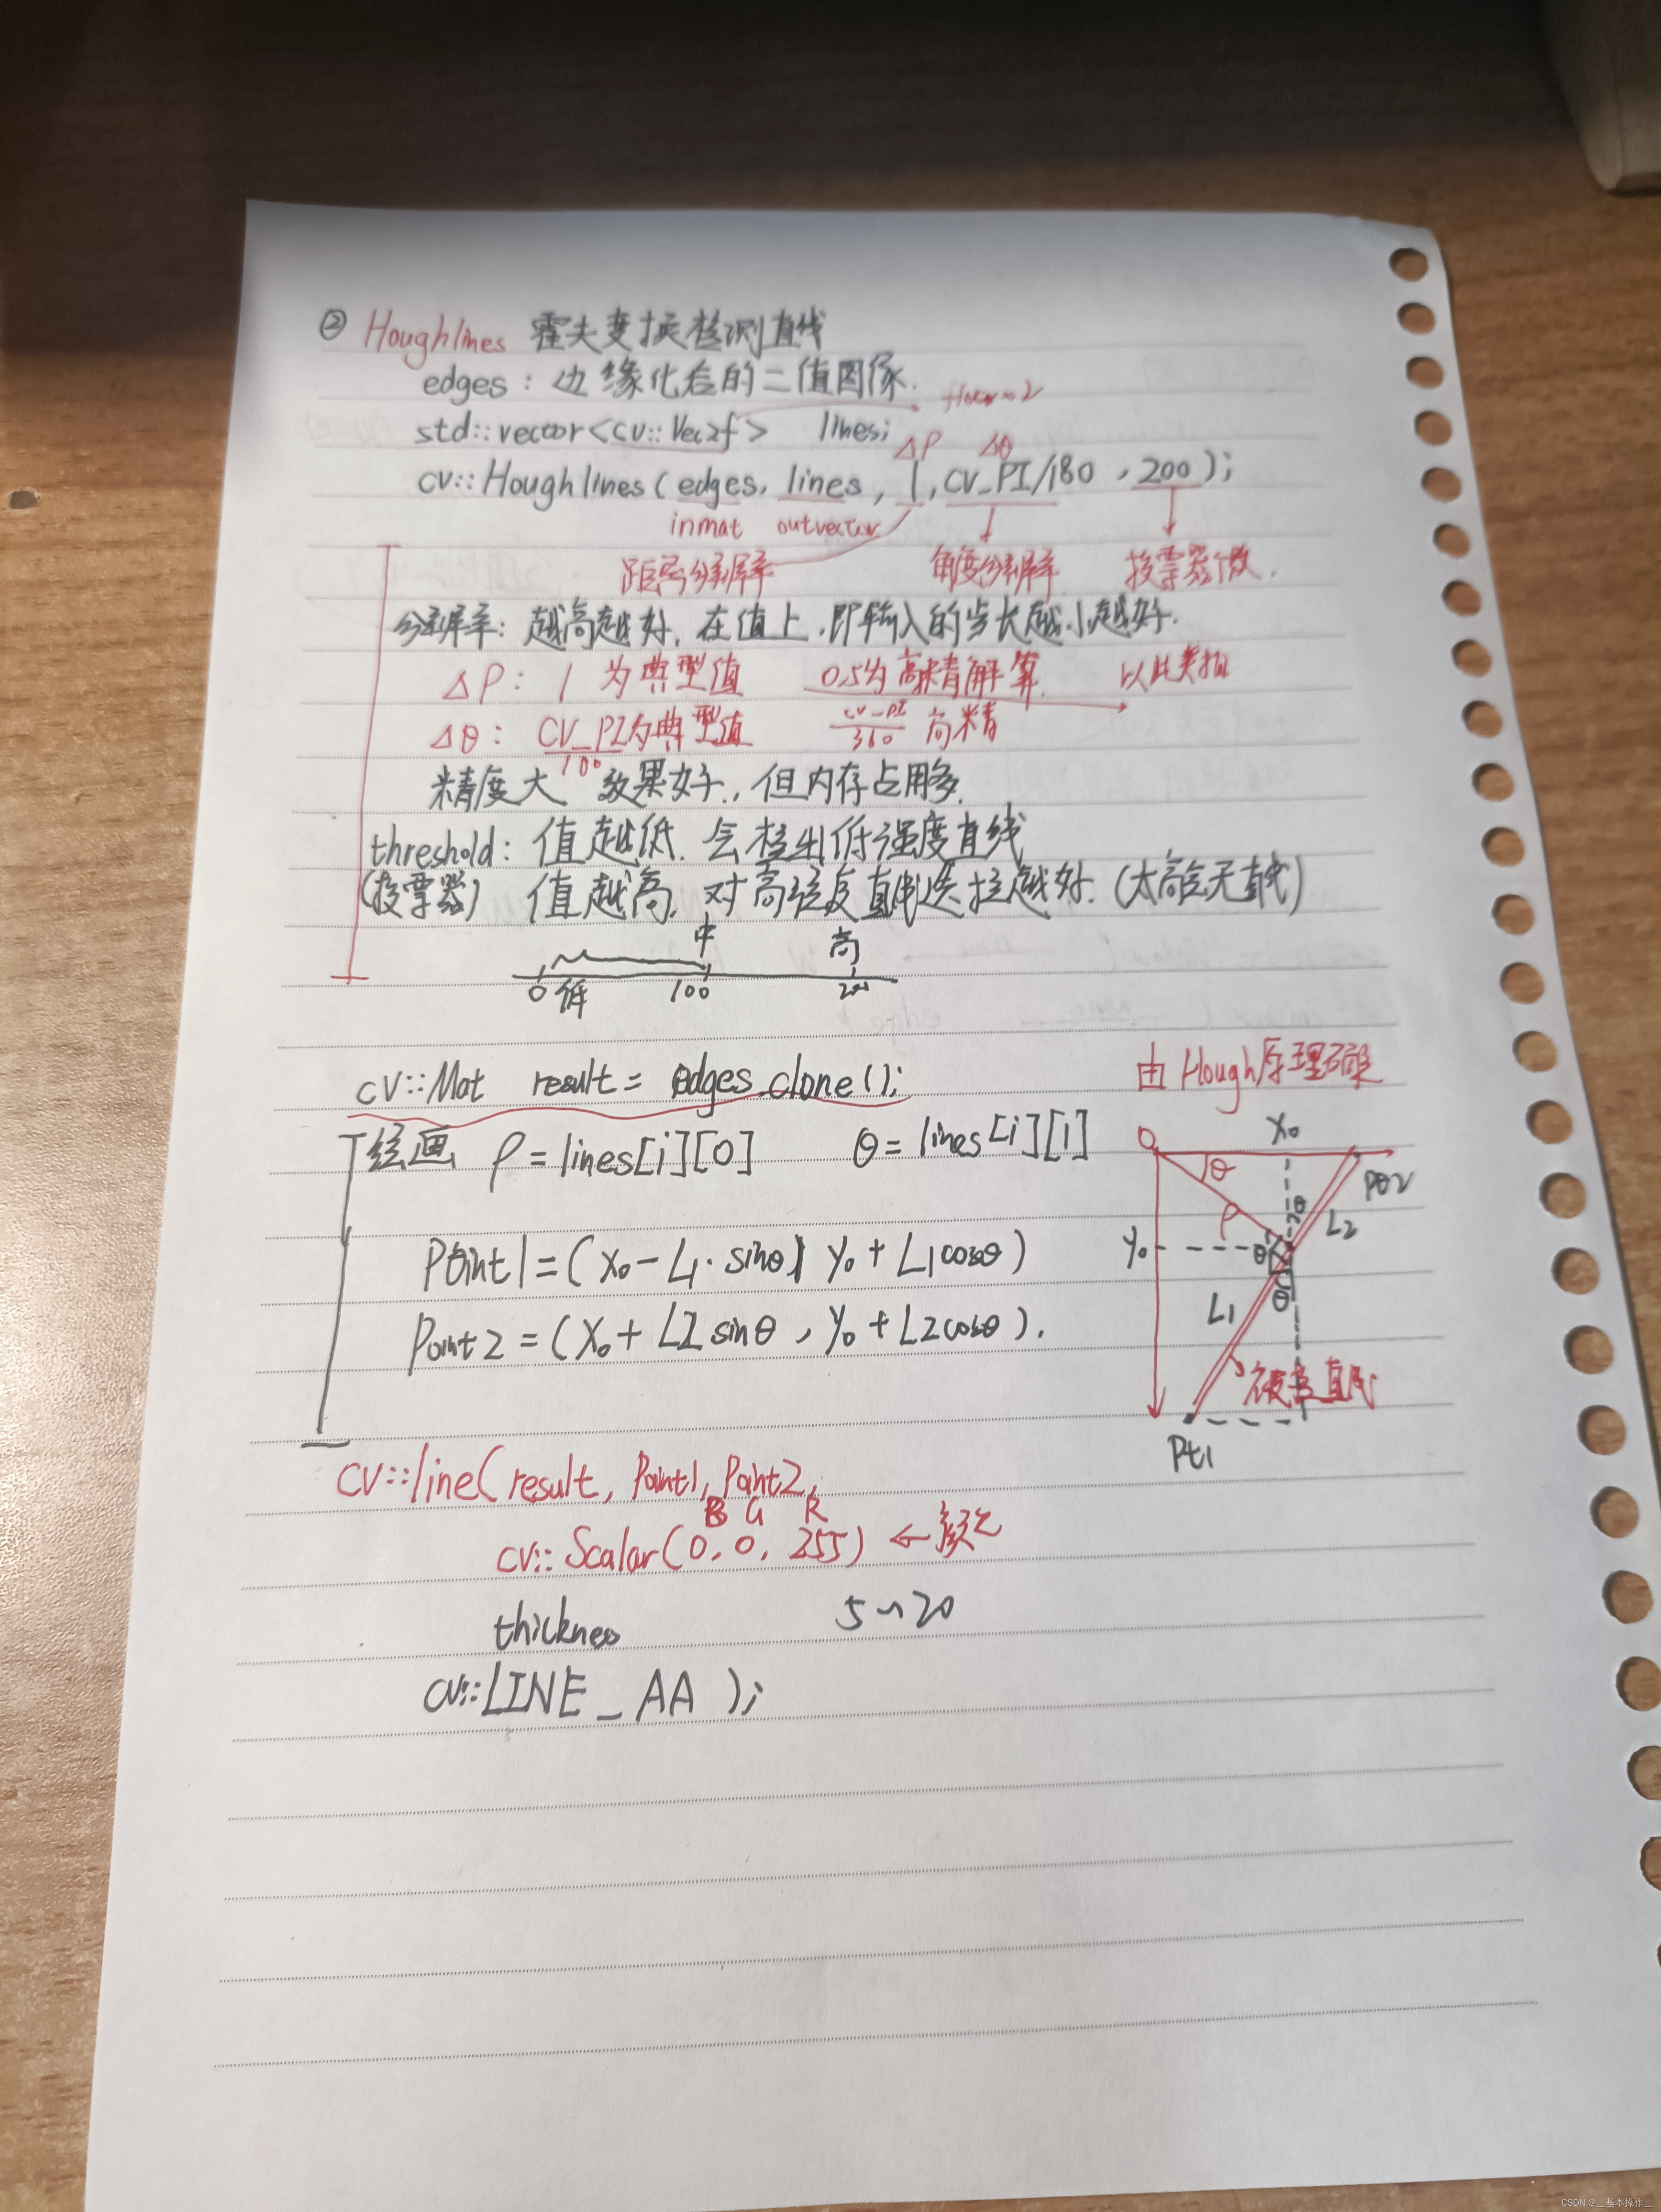 ② Houghlines 霍夫变换检测直线
edges : 边缘化后的二值图像.
float × 2
std::vector<cv::Vec2f> lines;
Δρ Δθ
cv::Houghlines(edges, lines, 1, CV_PI/180, 200);
inmat outvector
距离分辨率 角度分辨率 投票器个数.
分辨率: 越高越好, 在值上, 即输入的步长越小越好.
Δρ: 1 为典型值 0.5为高精解算. 以此类推
Δθ: CV_PI/180 为典型值 CV_PI/360 高精
精度大 效果好., 但内存占用多.
threshold: 值越低. 会检出低强度直线
(投票器) 值越高, 对高强度直线选择越好. (太高会无直线)
中 高
0 低 100 200
cv::Mat result = edges.clone();
由Hough原理
绘画 ρ = lines[i][0] θ = lines[i][1]
O X₀
θ Pt2
ρ θ L2
Y₀ θ
Point1 = (X₀ - L1· sinθ, Y₀ + L1cosθ)
L1 θ
Point2 = (X₀ + L2 sinθ, Y₀ + L2cosθ).
直线
Pt1
cv::line(result, Point1, Point2,
B G R
cv::Scalar(0, 0, 255) ← 颜色
thickness 5~20
cv::LINE_AA );
CSDN @__基本操作__